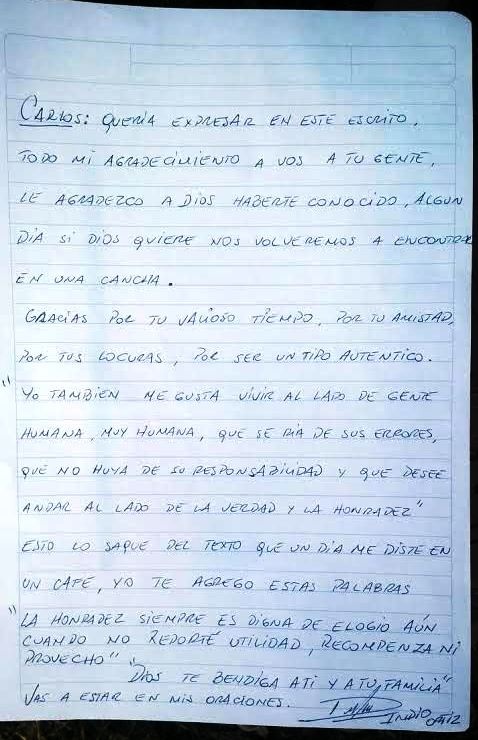 CARLOS: QUERIA EXPRESAR EN ESTE ESCRITO,
TODO MI AGRADECIMIENTO A VOS A TU GENTE,
LE AGRADEZCO A DIOS HABERTE CONOCIDO, ALGUN
DIA SI DIOS QUIERE NOS VOLVEREMOS A ENCONTRAR
EN UNA CANCHA.
GRACIAS POR TU VALIOSO TIEMPO, POR TU AMISTAD,
POR TUS LOCURAS, POR SER UN TIPO AUTENTICO.
"YO TAMBIEN ME GUSTA VIVIR AL LADO DE GENTE
HUMANA, MUY HUMANA, QUE SE RIA DE SUS ERRORES,
QUE NO HUYA DE SU RESPONSABILIDAD Y QUE DESEE
ANDAR AL LADO DE LA VERDAD Y LA HONRADEZ"
ESTO LO SAQUE DEL TEXTO QUE UN DIA ME DISTE EN
UN CAFE, YO TE AGREGO ESTAS PALABRAS
"LA HONRADEZ SIEMPRE ES DIGNA DE ELOGIO AÚN
CUANDO NO REPORTÉ UTILIDAD, RECOMPENZA NI
PROVECHO"
"DIOS TE BENDIGA A TI Y A TU FAMILIA"
VAS A ESTAR EN MIS ORACIONES.
INDIO ORTIZ